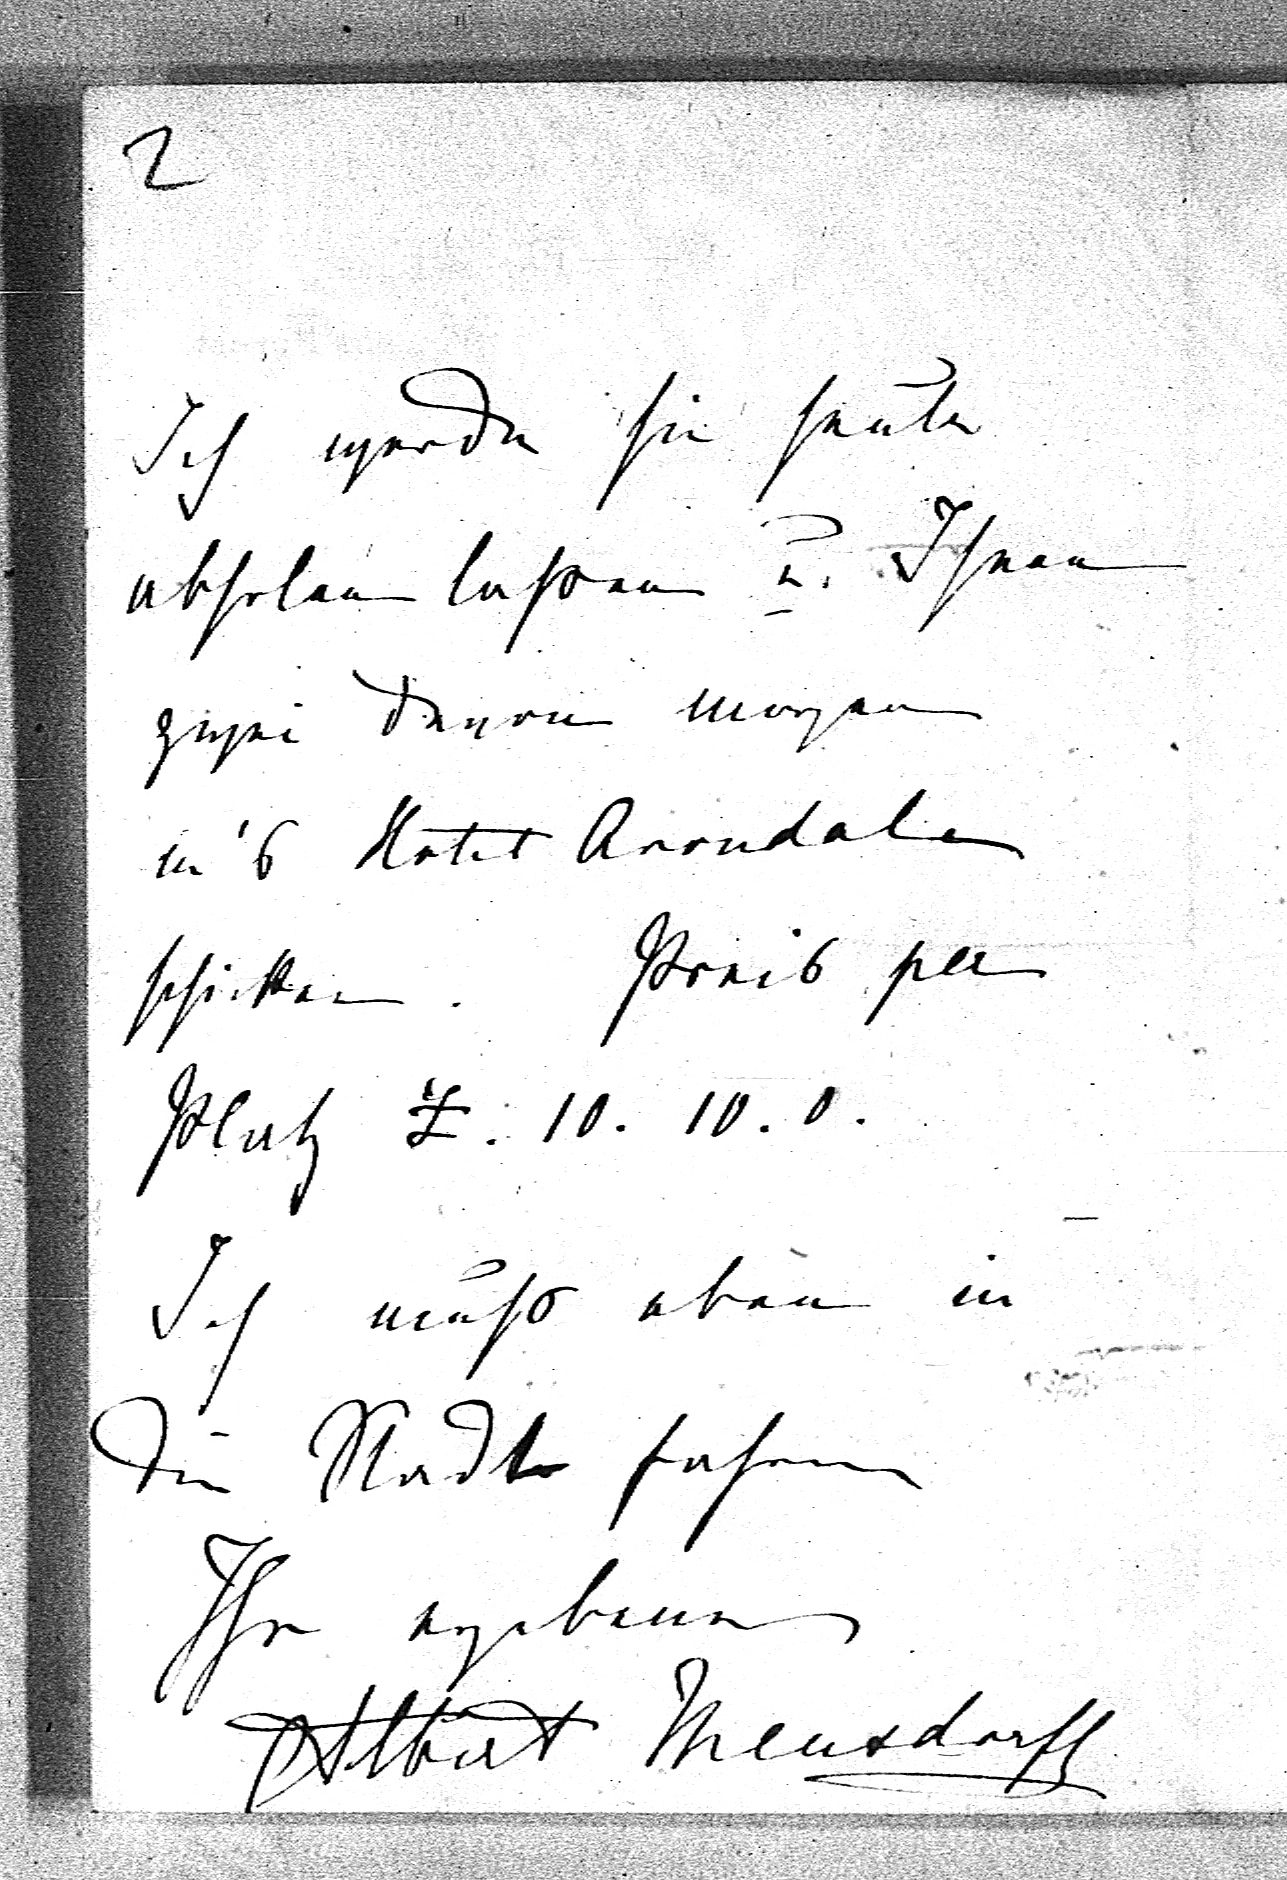 2
Ich werde sie heute
abholen lassen u. Ihnen
zwei davon morgen
in's Hotel Arundale
schicken. Preis per
Platz £. 10. 10. 0.
Ich muß eben in
die Stadt fahren
Ihr ergebener
Albert Mensdorff